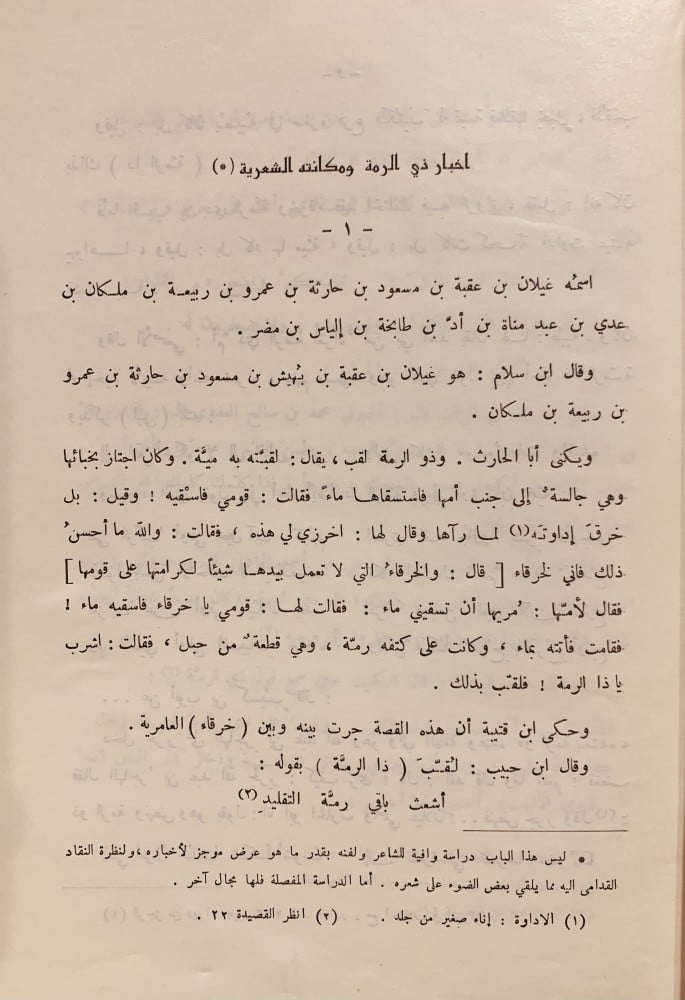 اخبار ذي الرمة ومكانته الشعرية (*)
- ١ -
اسمُه غيلان بن عقبة بن مسعود بن حارثة بن عمرو بن ربيعة بن ملكان بن
عدي بن عبد مناة بن أدَّ بن طابخة بن إلياس بن مضر .
وقال ابن سلام : هو غيلان بن عقبة بن بُهيش بن مسعود بن حارثة بن عمرو
بن ربيعة بن ملكان .
ويكنى أبا الحارث . وذو الرمة لقب ، يقال : لقبَّته به ميَّة . وكان اجتاز بخبائها
وهي جالسةٌ إلى جنب أمها فاستسقاها ماءً فقالت : قومي فاسْقيه ! وقيل : بل
خرقَ إداوتَه(١) لما رآها وقال لها : اخرزي لي هذه ، فقالت : والله ما أحسنُ
ذلك فاني لخرقاء [ قال : والخرقاءُ التي لا تعمل بيدها شيئاً لكرامتها على قومها ]
فقال لأمّها : مُريها أن تسقيني ماء : فقالت لها : قومي يا خرقاء فاسقيه ماء !
فقامت فأتته بماء ، وكانت على كتفه رمّة ، وهي قطعةٌ من حبل ، فقالت : اشرب
يا ذا الرمة ! فلقّب بذلك .
وحكى ابن قتيبة أن هذه القصة جرت بينه وبين ( خرقاء ) العامرية .
وقال ابن حبيب : لُقّبَ ( ذا الرمَّة ) بقوله :
أشعث باقي رمَّة التقليدِ(٢)
* ليس هذا الباب دراسة وافية للشاعر ولفنه بقدر ما هو عرض موجز لأخباره ، ولنظرة النقاد
القدامى اليه مما يلقي بعض الضوء على شعره . أما الدراسة المفصلة فلها مجال آخر .
(١) الاداوة : إناء صغير من جلد . (٢) انظر القصيدة ٢٢ .